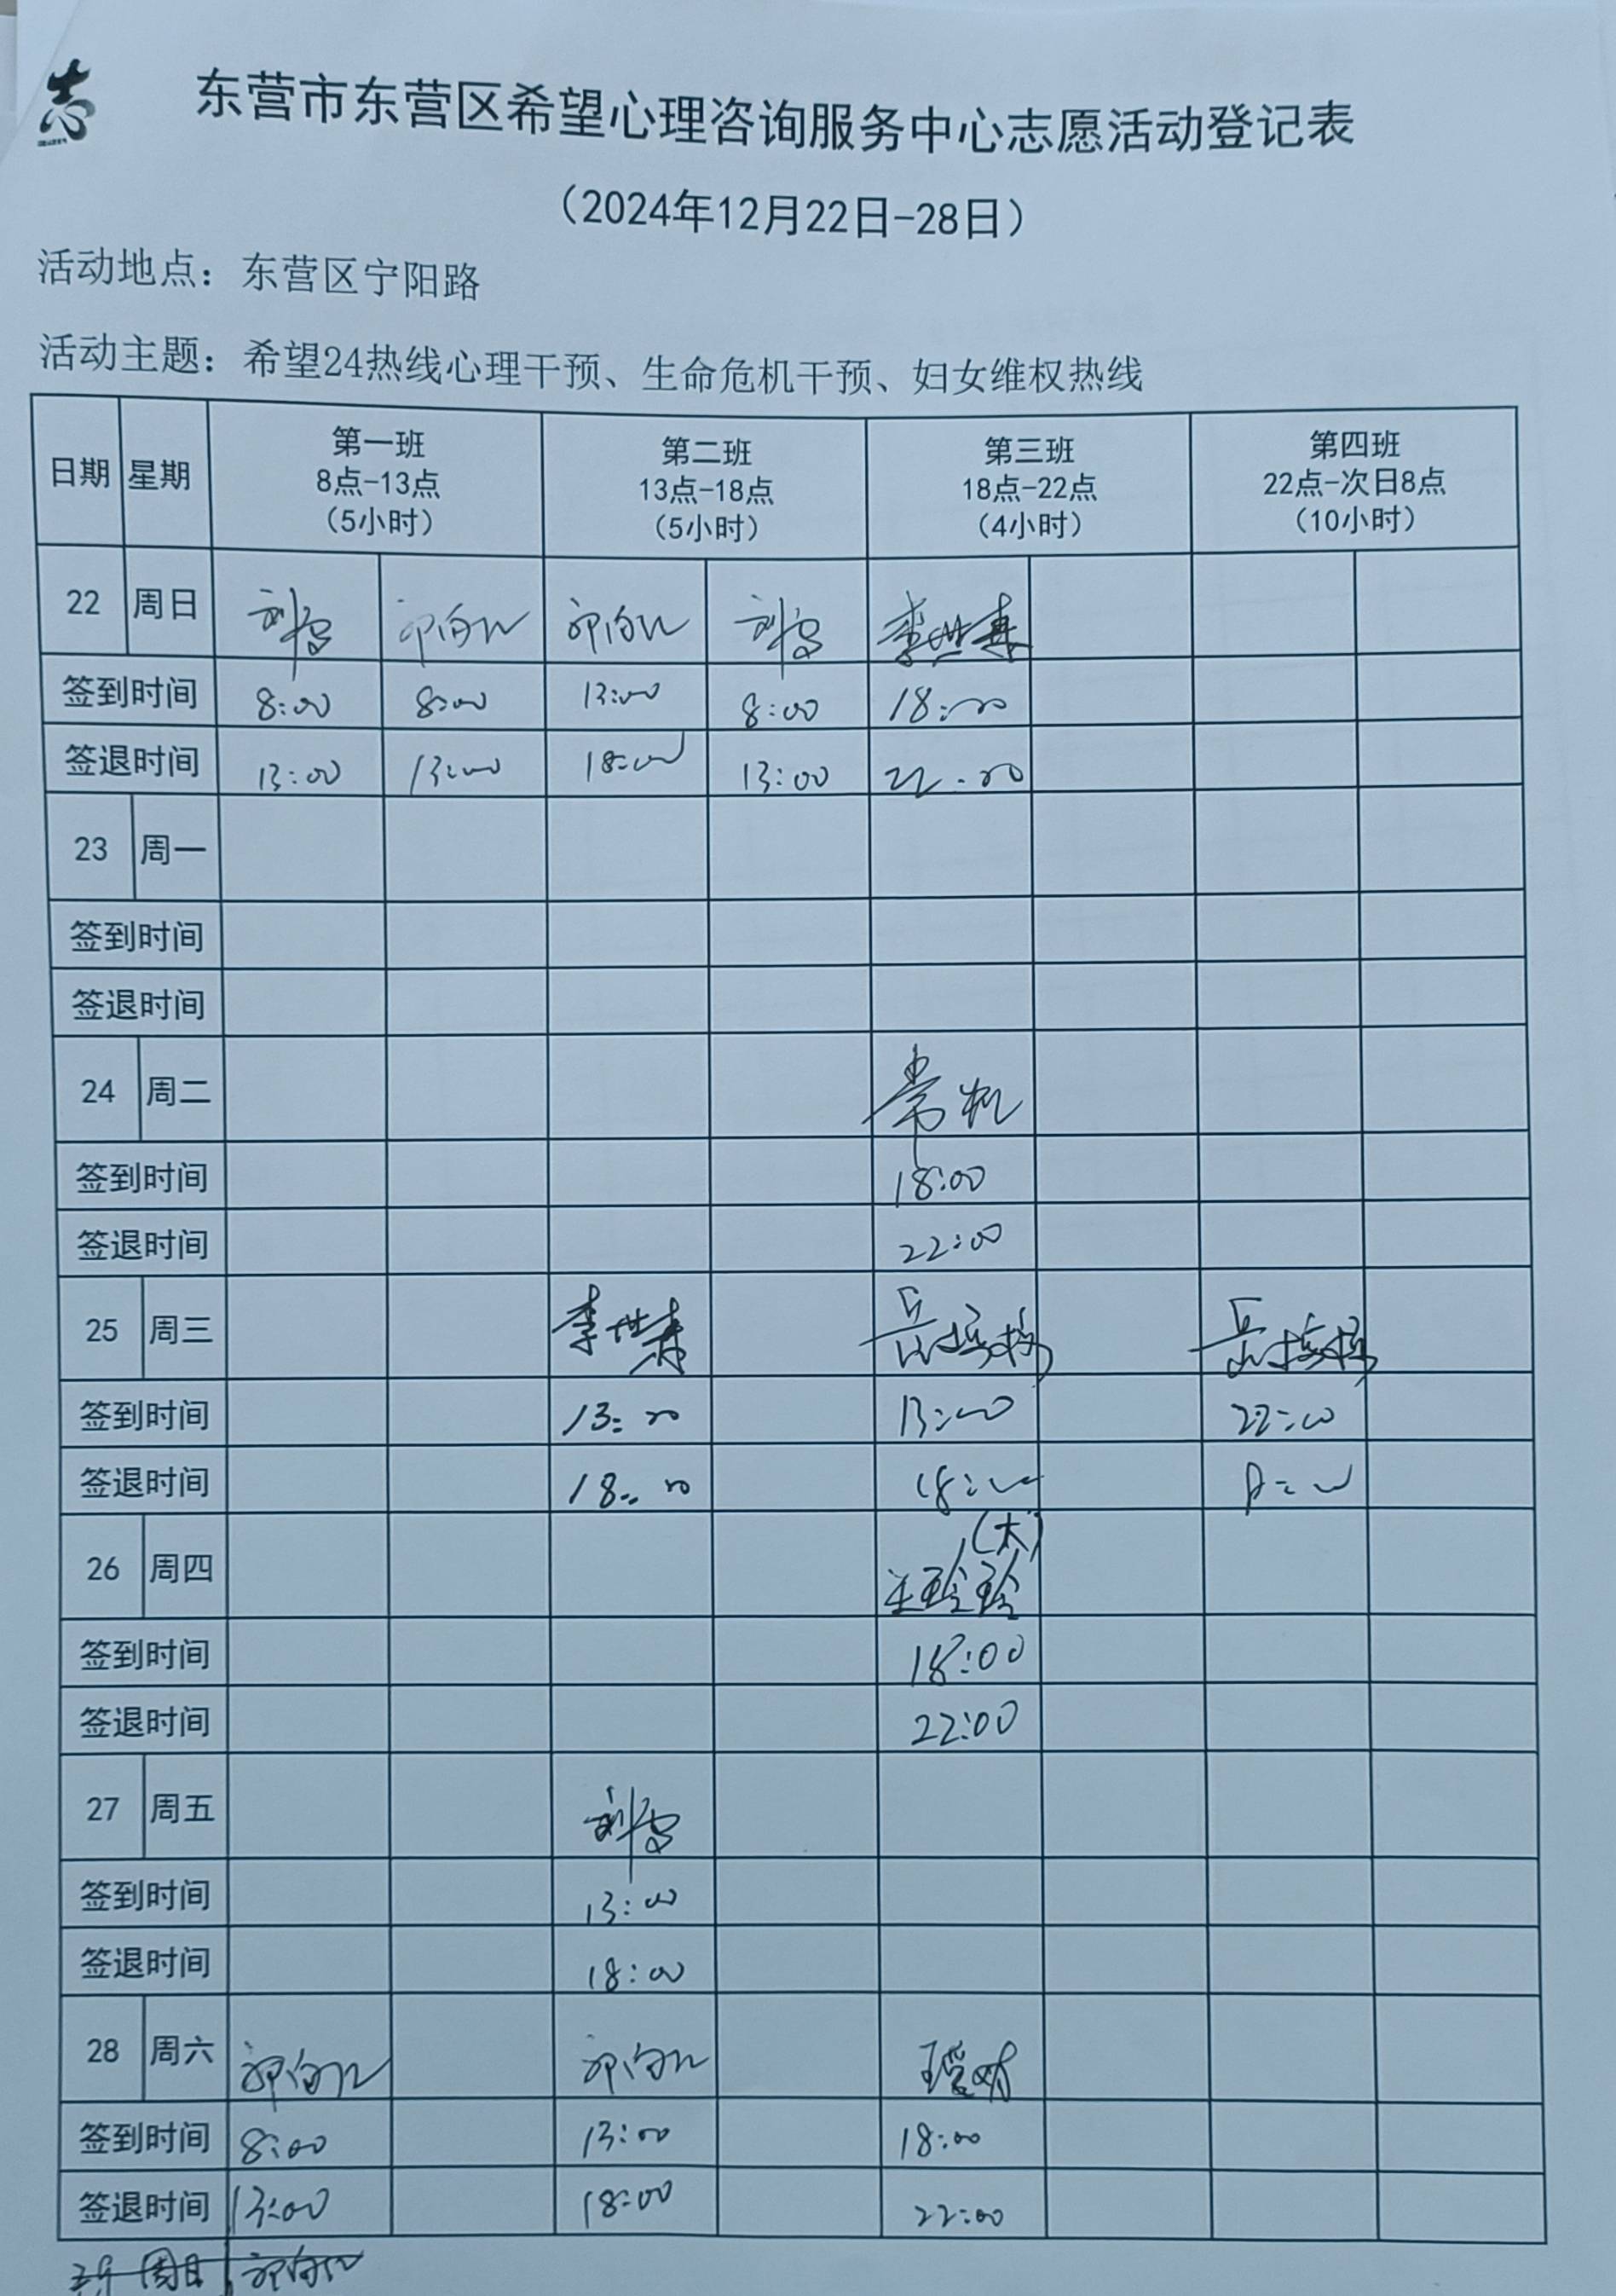 志
东营市东营区希望心理咨询服务中心志愿活动登记表
（2024年12月22日-28日）
活动地点：东营区宁阳路
活动主题：希望24热线心理干预、生命危机干预、妇女维权热线
日期 星期 第一班 8点-13点 （5小时） 第二班 13点-18点 （5小时） 第三班 18点-22点 （4小时） 第四班 22点-次日8点 （10小时）
22 周日
签到时间 8:00 8:00 13:00 8:00 18:00
签退时间 13:00 13:00 18:00 13:00 22:00
23 周一
签到时间
签退时间
24 周二
签到时间 18:00
签退时间 22:00
25 周三 李世春
签到时间 13:00 13:00 22:00
签退时间 18:00 18:00 8:00
26 周四 (大) 王玲玲
签到时间 18:00
签退时间 22:00
27 周五
签到时间 13:00
签退时间 18:00
28 周六
签到时间 8:00 13:00 18:00
签退时间 13:00 18:00 22:00
周日